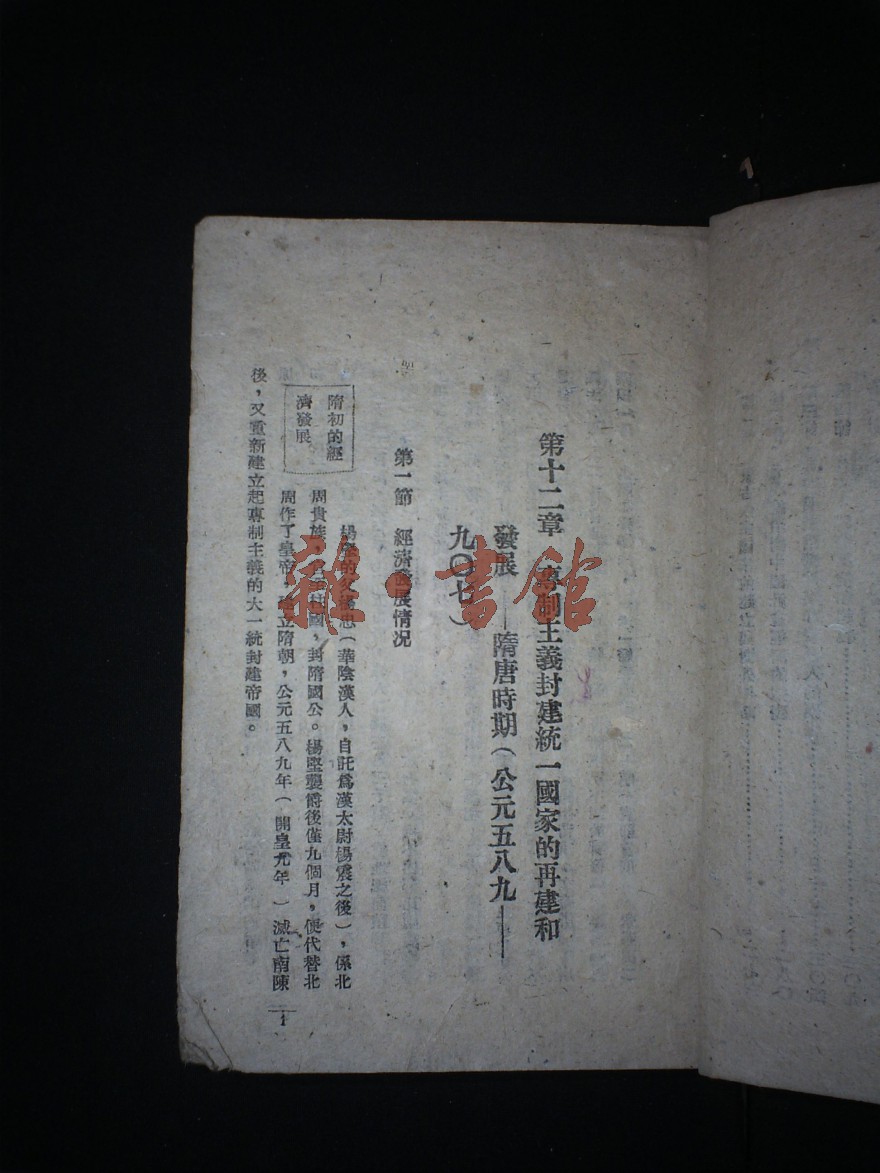 第十二章 專制主義封建統一國家的再建和
發展——隋唐時期(公元五八九——
九〇七)
第一節 經濟發展情況
隋初的經
濟發展
楊堅的父楊忠(華陰漢人,自託爲漢太尉楊震之後),係北
周貴族,官至柱國,封隋國公。楊堅襲爵後僅九個月,便代替北
周作了皇帝,建立隋朝,公元五八九年(開皇九年)滅亡南陳
後,又重新建立起專制主義的大一統封建帝國。
1
雜·書館